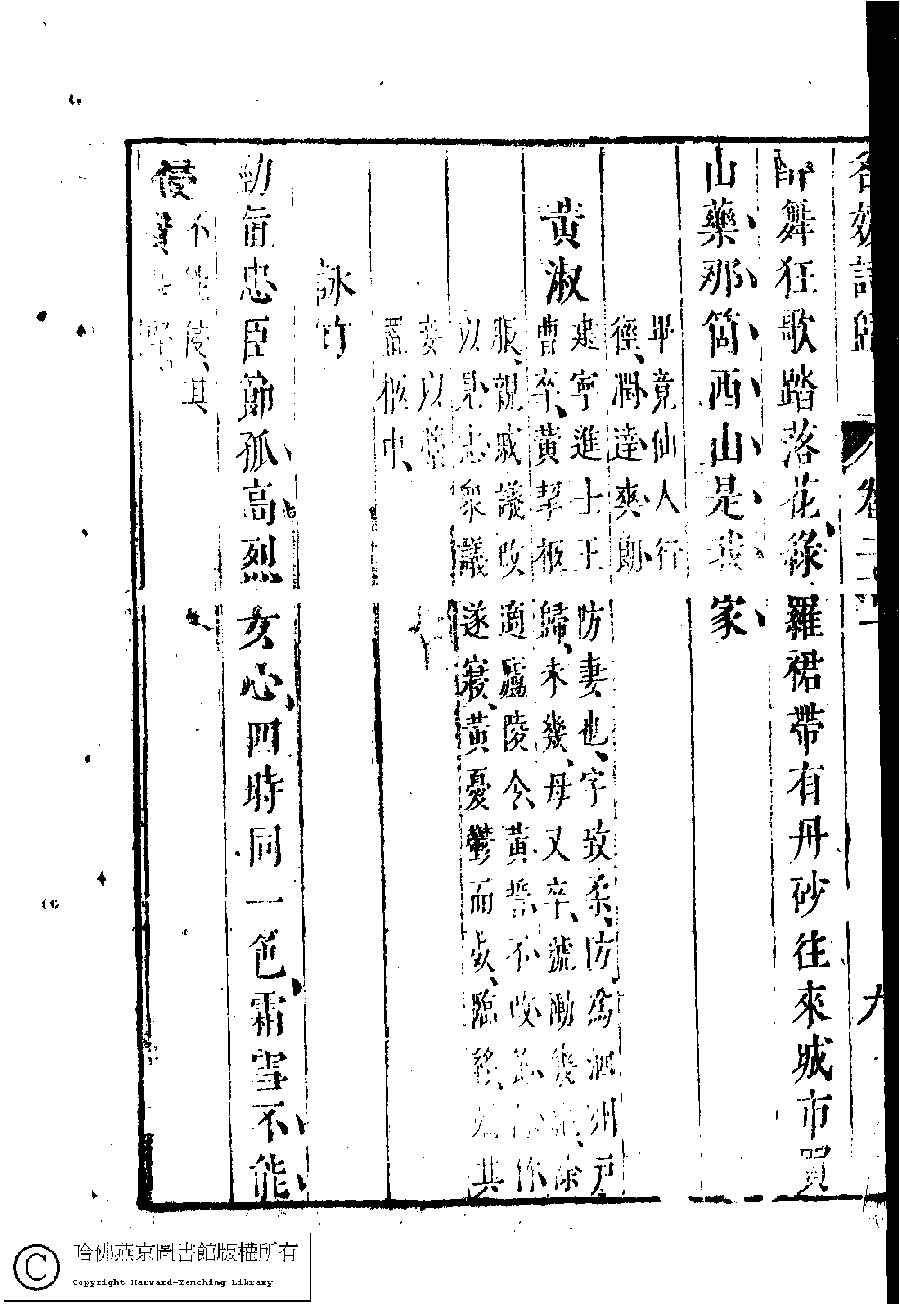 名媛詩歸 卷二十 九
醉舞狂歌踏落花綠羅裙帶有丹砂往來城市買
山藥那箇西山是我家
畢竟仙人行
徑瀟達爽朗
黃淑
建寧進士王防妻也字致柔防為泗州戶
曹卒黃挈柩歸未幾母又卒號慟幾絕除
服親戚議改適廬陵令黃誓不改
以見志眾議遂寢黃憂鬱而歿臨其
置柩中
詠竹
勁直忠臣節孤高烈女心四時同一色霜雪不能
侵
不能侵其
哈佛燕京圖書館版權所有
Copyright Harvard-Yenching Library